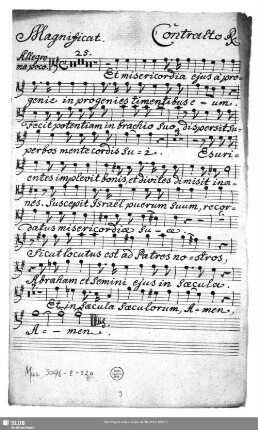 Magnificat. Contralto
Allegro
ma poco. 25.
Et misericordia ejus a pro-
genie in progenies timentibus e-um.
Fecit potentiam in brachio suo, dispersit su-
perbos mente cordis su-i. Esuri-
entes implevit bonis, et divites dimisit ina-
nes. Suscepit Israel puerum suum, recor-
datus misericordia su-a
Sicut locutus est ad Patres no-stros,
Abraham et semini ejus in sæcula.
Et in sæcula sæculorum, Amen,
A-men.
Mus. 3096-E-520
3
SLUB